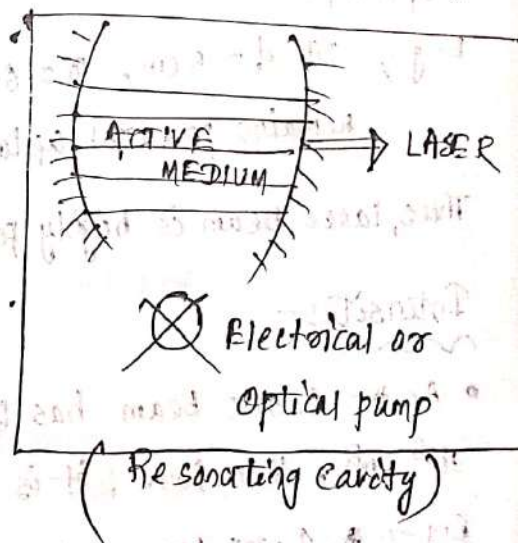 ACTIVE
MEDIUM
LASER
Electrical or
Optical pump
(Resonating Cavity)